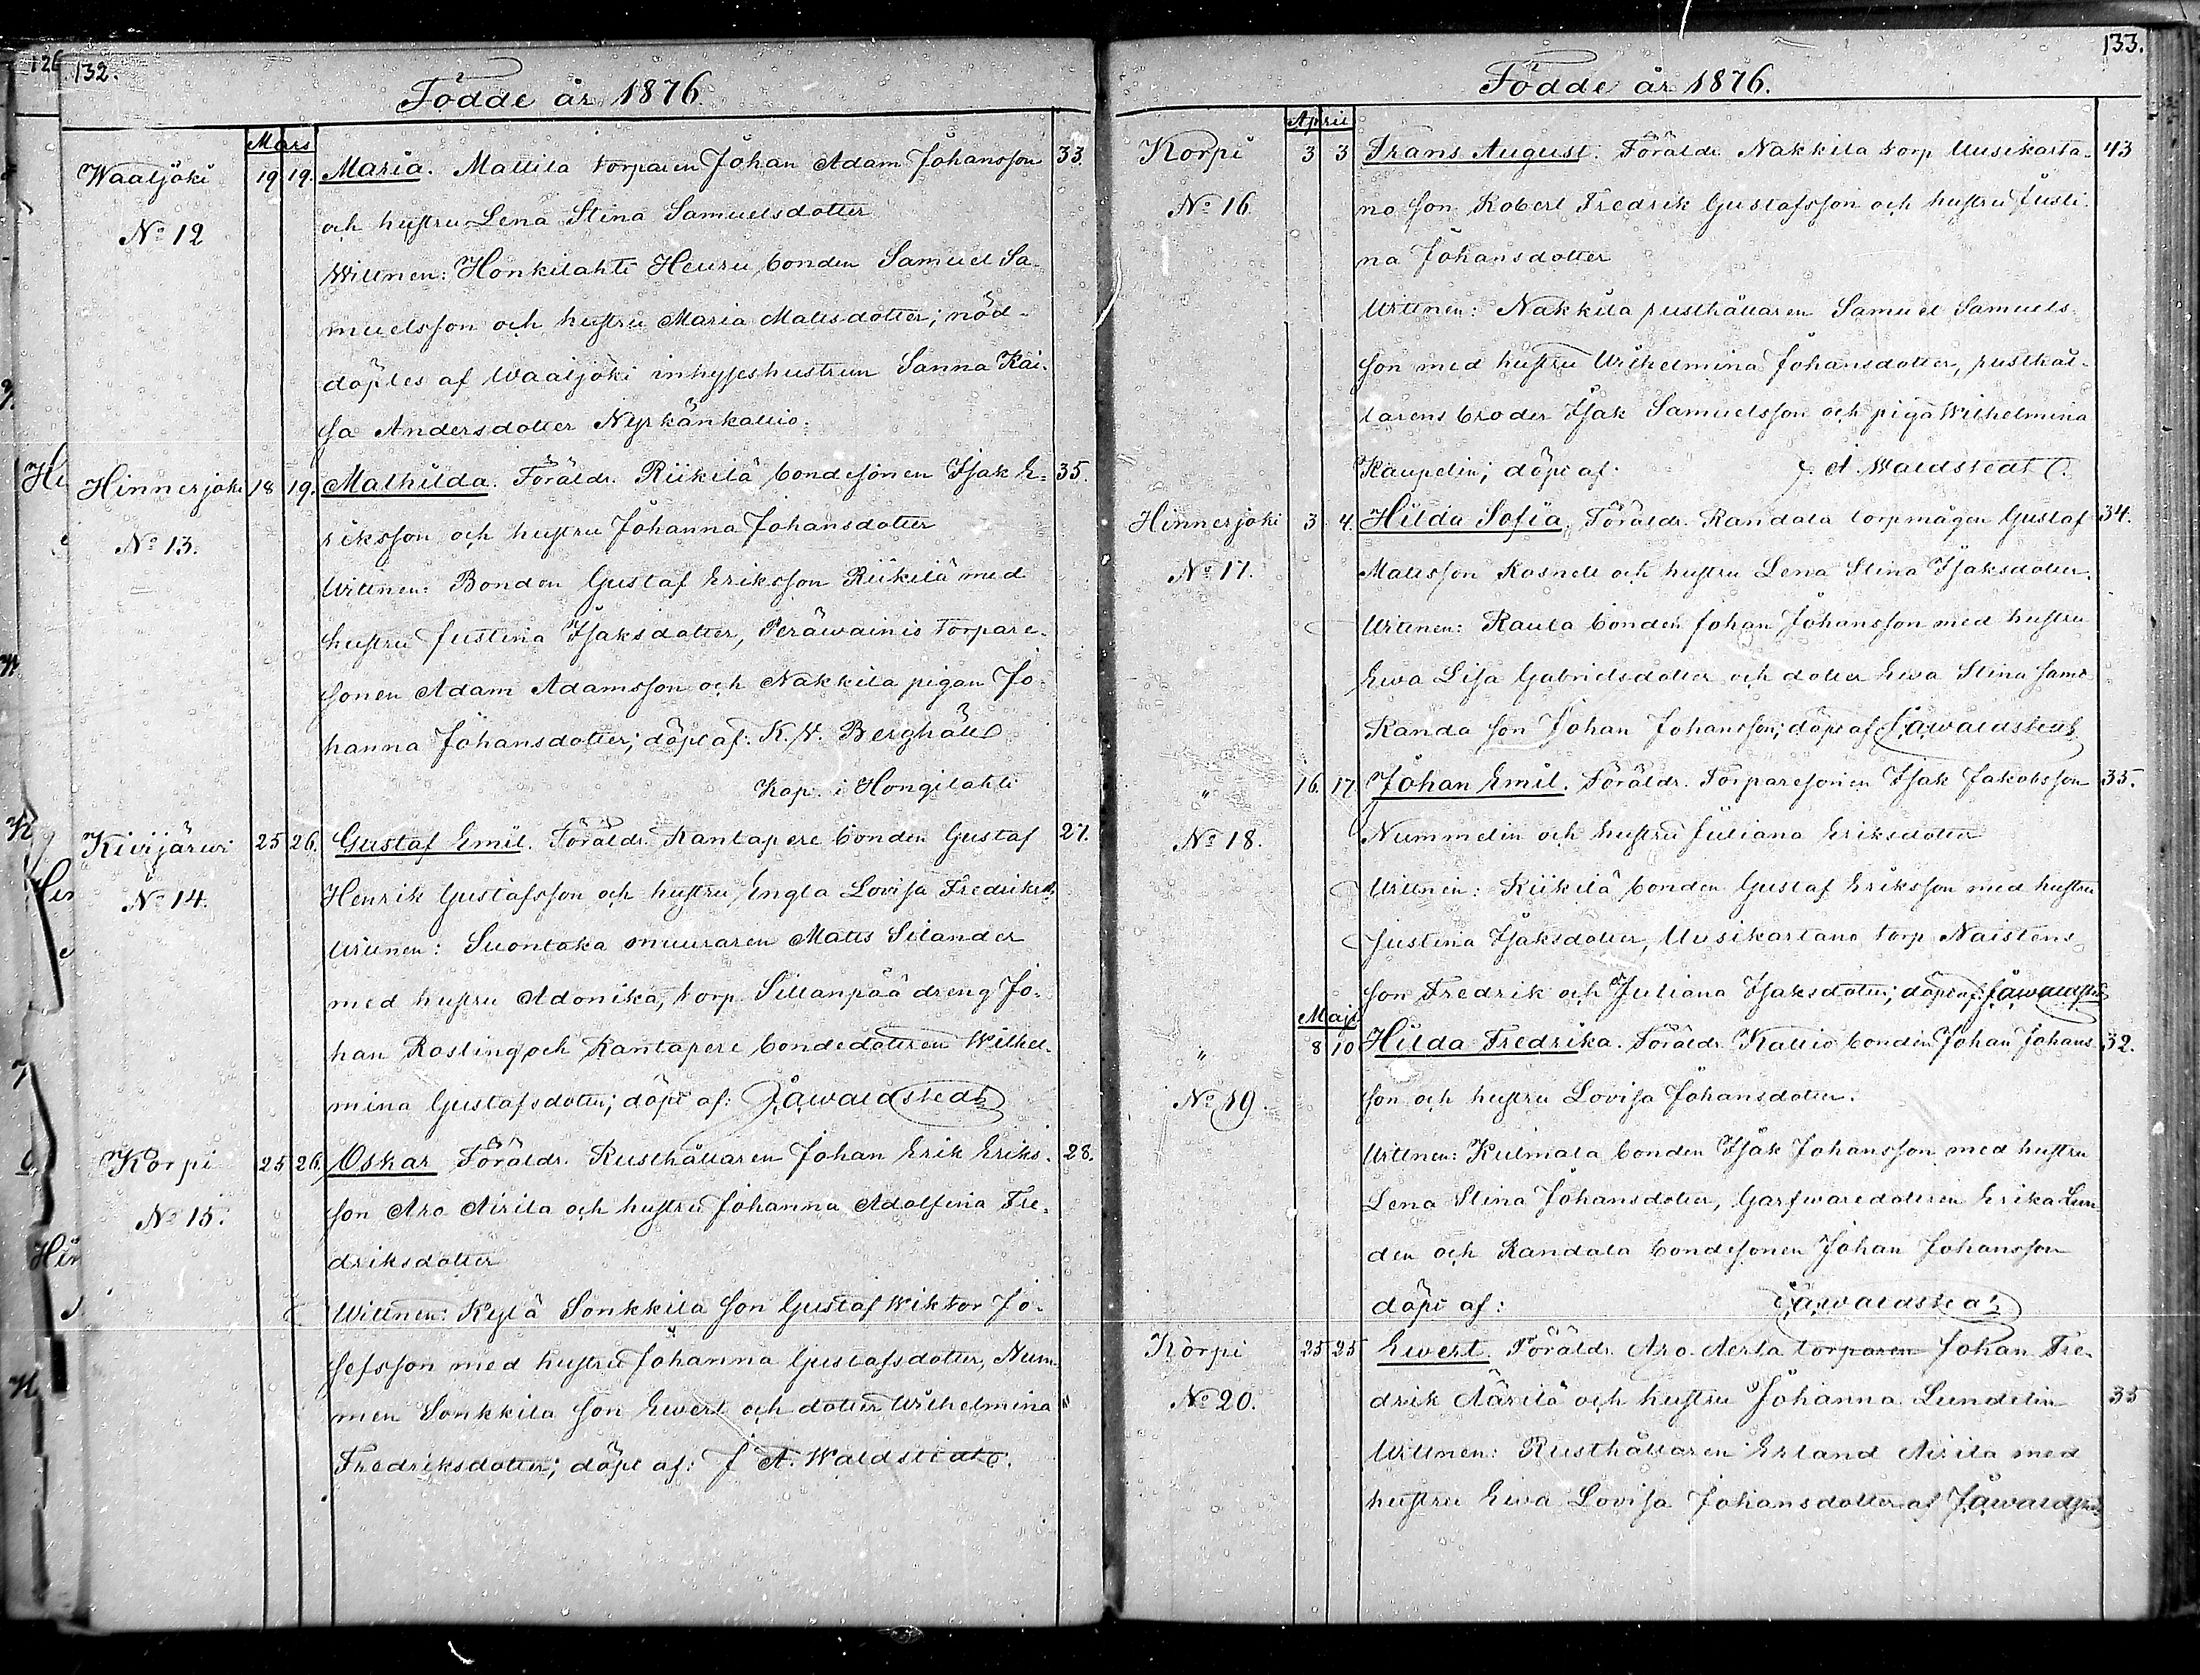 126
132.
Födde år 1876.
Mars
Waaljoki 19 19. Maria. Mattila torparen Johan Adam Johansson 33.
och hustru Lena Stina Samuelsdotter
No 12
Wittnen: Honkilahti Heuru bonden Samuel Sa-
muelsson och hustru Maria Matsdotter; nöd-
döptes af Waaljoki inhyseshustrun Sanna Kai-
sa Andersdotter Nyrkänkallio.
Hinnerjoki 18 19. Mathilda. Föräldr. Riikilä bondesonen Isak E- 35.
riksson och hustru Johanna Johansdotter
No 13.
Wittnen: Bonden Gustaf Eriksson Riikilä med
hustru Justina Isaksdotter, Peräwainio torpare-
sonen Adam Adamsson och Nakkila pigan Jo-
hanna Johansdotter; döpt af: K. V. Berghäll
Kap. i Hongilahti
Kiwijärwi 25 26. Gustaf Emil. Föräldr. Rantapere bonden Gustaf 27.
Henrik Gustafsson och hustru Engla Lovisa Fredriksd.
No 14.
Wittnen: Suontaka muuraren Mats Silander
med hustru Adonika, torp. Sillanpää dreng Jo-
han Rosting och Rantapere bondedotteren Wilhel-
mina Gustafsdotter; döpt af: J. A. Waldstedt
Korpi 25 26. Oskar Föräldr. Rusthållaren Johan Erik Eriks- 28.
son Aro Airila och hustru Johanna Adolfina Fre-
No 15.
driksdotter
Wittnen: Kylä Sonkkila son Gustaf Wiktor Jo-
sefsson med hustru Johanna Gustafsdotter, Num-
men Sonkkila son Ewert och dotter Wilhelmina
Fredriksdotter; döpt af: J. A. Waldstedt.
133.
Födde år 1876.
April
Korpi 3 3 Frans August. Föräldr. Nakkila torp Uusikarta- 43
no son Robert Fredrik Gustafsson och hustru Justi-
No 16.
na Johansdotter
Wittnen: Nakkila rusthållaren Samuel Samuels-
son med hustru Wilhelmina Johansdotter, rusthål-
larens broder Isak Samuelsson och piga Wilhelmina
Kaupelin; döpt af: J. A. Waldstedt.
Hinnerjoki 3 4. Hilda Sofia. Föräldr. Randala torpmågen Gustaf 34.
Matsson Rosnell och hustru Lena Stina Isaksdotter.
No 17.
Wittnen: Raula bonden Johan Johansson med hustru
Ewa Lisa Gabrielsdotter och dotter Ewa Stina samt
Randa son Johan Johansson; döpt af J. A. Waldstedt
" 16. 17 Johan Emil. Föräldr. Torparesonen Isak Jakobsson 35.
Nummelin och hustru Juliana Eriksdotter
No 18.
Wittnen: Riikilä bonden Gustaf Eriksson med hustru
Justina Isaksdotter, Uusikartano torp Naistens
son Fredrik och Juliana Isaksdotter; döpt af: J. A. Waldstedt
Maji
" 8 10 Hilda Fredrika. Föräldr. Kallio bonden Johan Johans- 32.
son och hustru Lovisa Johansdotter.
No 19.
Wittnen: Kulmala bonden Isak Johansson med hustru
Lena Stina Johansdotter, Garfwaredotteren Erika Lun-
den och Randala bondesonen Johan Johansson
döpt af: J. A. Waldstedt
Korpi 25 25 Ewert. Föräldr. Aro Aerla torparen Johan Fre-
drik Äärilä och hustru Johanna Lundelin 35
No 20.
Wittnen: Rusthållaren Erland Airila med
hustru Ewa Lovisa Johansdotter af J. A. Waldstedt